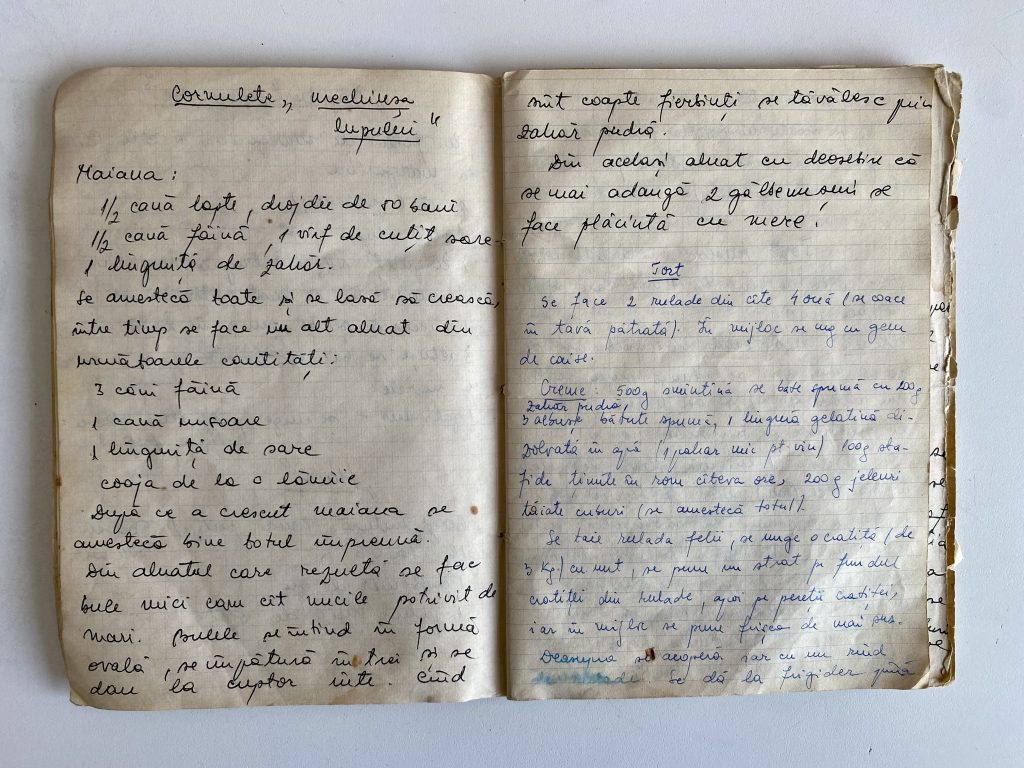 Cornulete „ nechiusa
lupului "
Maiaua :
1/2 cană lapte, drojdie de 50 bani
1/2 cană făină, 1 vîrf de cuțit sare
1 linguriță de zahăr.
Se amestecă toate și se lasă să crească,
între timp se face un alt aluat din
următoarele cantități:
3 căni făină
1 cană unsoare
1 linguriță de sare
coaja de la o lămîie
După ce a crescut maiaua se
amestecă bine totul împreună.
Din aluatul care rezultă se fac
bule mici cam cît nucile potrivit de
mari. Bulele se întind în formă
ovală, se împătură în trei și se
dau la cuptor iute. Cînd
sînt coapte fierbinți se tăvălesc prin
zahăr pudră.
Din același aluat cu deosebire că
se mai adaugă 2 gălbenușuri se
face plăcintă cu mere.
Tort
Se face 2 rulade din cîte 4 ouă (se coace
în tavă pătrată). În mijloc se ung cu gem
de caise.
Creme: 500g smîntînă se bate spumă cu 200g
zahăr pudră,
3 albușe bătute spumă, 1 lingură gelatină di-
zolvată în apă (1 pahar mic pt vin) 100g sta-
fide ținute în rom cîteva ore, 200g jeleuri
tăiate cuburi (se amestecă totul).
Se taie rulada felii, se unge o cratiță (de
3 Kg.) cu unt, se pune un strat pe fundul
cratiței din rulade, apoi pe pereții cratiței,
iar în mijloc se pune frișca de mai sus.
Deasupra se acoperă iar cu un rînd
de rulade. Se dă la frigider pînă